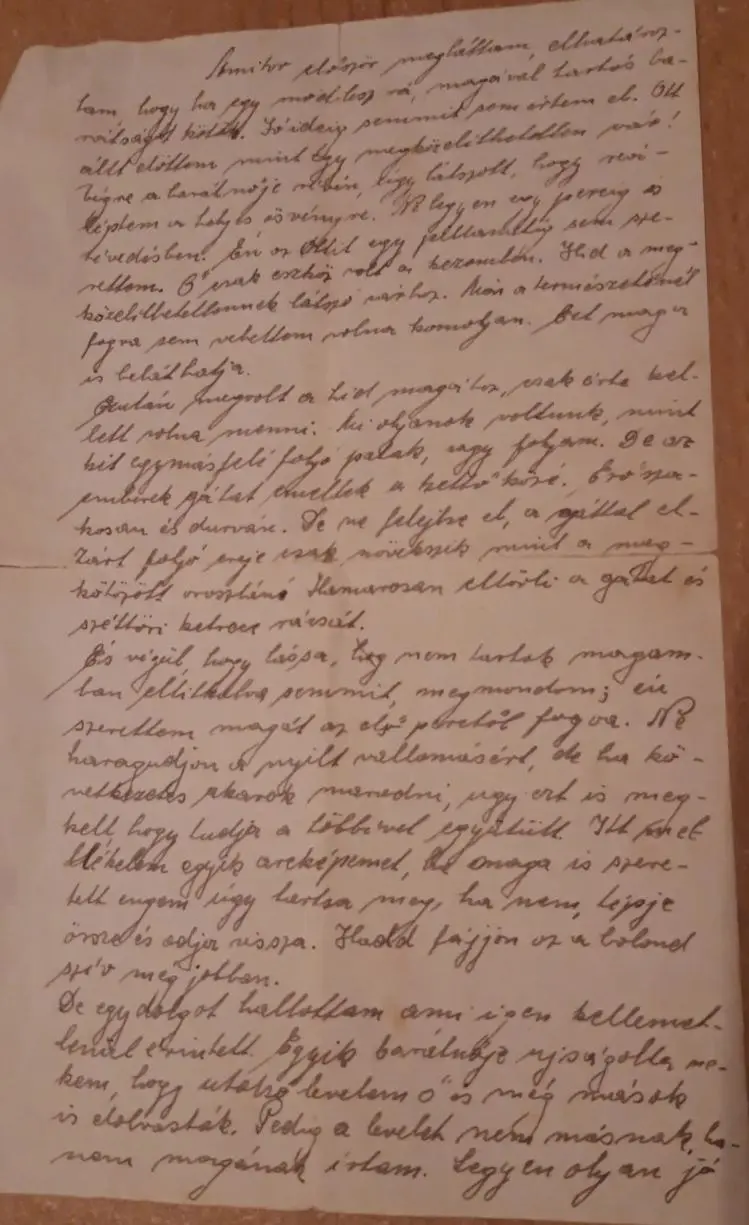 Amikor először megláttam, elhatároz-
tam, hogy ha egy mód lesz rá, magával tartós ba-
rátságot kötök. Jó ideig semmit sem értem el. Ott
állt előttem mint egy megközelíthetetlen vár!
Végre a barátnője révén, úgy látszott, hogy reá-
léptem a helyes ösvényre. Ne legyen egy percig is
tévedésben. Én az Ottit egy pillanatig sem sze-
rettem. Ő csak eszköz volt a kezemben. Híd a meg-
közelíthetetlennek látszó várhoz. Már a természeténél
fogva sem vehettem volna komolyan. Ezt maga
is beláthatja.
Ezután megvolt a híd magához, csak át kel-
lett volna menni. Mi olyanok voltunk, mint
két egymásfelé folyó patak, vagy folyam. De az
emberek gátat emeltek a kettő közé. Erősza-
kosan és durván. De ne felejtse el, a gáttal el-
zárt folyó ereje csak növekszik mint a meg-
kötözött oroszláné Hamarosan eltörli a gátat és
széttöri ketrece rácsát.
És végül, hogy lássa, hog nem tartok magam-
ban eltitkolva semmit, megmondom; én
szerettem magát az első perctől fogva. Ne
haragudjon a nyílt vallomásért, de ha kö-
vetkezetes akarok maradni, ugy ezt is meg-
kell hogy tudja a többivel együtt. Itt
mellékelem egyik arcképemet, ha maga is szere-
tett engem úgy tartsa meg, ha nem, tépje
össze és adja vissza. Hadd fájjon az a bolond
szív még jobban.
De egy dolgot hallottam ami igen kellemet-
lenül érintett. Egyik barátnője ujságolta ne-
kem, hogy utolsó levelem ő és még mások
is elolvasták. Pedig a levelet nem másnak, ha-
nem magának írtam. Legyen olyan jó